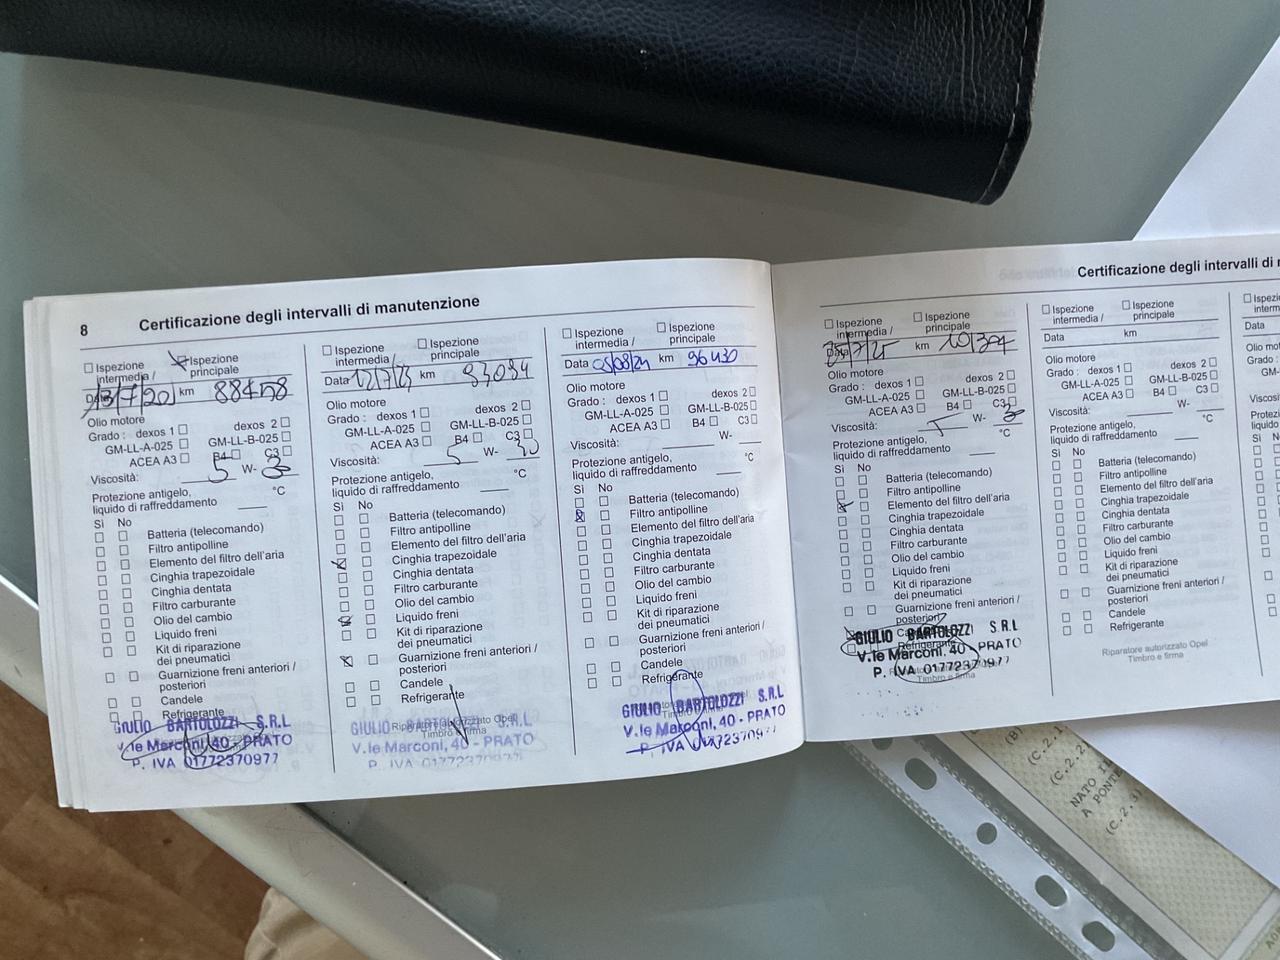 8 Certificazione degli intervalli di manutenzione
Ispezione intermedia /
Ispezione principale
Data 13/7/20 km 88458
Olio motore
Grado : dexos 1 dexos 2
GM-LL-A-025 GM-LL-B-025
ACEA A3 B4 C3
Viscosità: 5 W- 30
Protezione antigelo,
liquido di raffreddamento °C
Sì No
Batteria (telecomando)
Filtro antipolline
Elemento del filtro dell'aria
Cinghia trapezoidale
Cinghia dentata
Filtro carburante
Olio del cambio
Liquido freni
Kit di riparazione
dei pneumatici
Guarnizione freni anteriori /
posteriori
Candele
Refrigerante
GIULIO BARTOLOZZI S.R.L
V.le Marconi, 40 - PRATO
P. IVA 01772370977
Ispezione intermedia /
Ispezione principale
Data 12/7/23 km
Olio motore
Grado : dexos 1 dexos 2
GM-LL-A-025 GM-LL-B-025
ACEA A3 B4 C3
Viscosità: 5 W- 30
Protezione antigelo,
liquido di raffreddamento °C
Sì No
Batteria (telecomando)
Filtro antipolline
Elemento del filtro dell'aria
Cinghia trapezoidale
Cinghia dentata
Filtro carburante
Olio del cambio
Liquido freni
Kit di riparazione
dei pneumatici
Guarnizione freni anteriori /
posteriori
Candele
Refrigerante
Riparatore autorizzato Opel
Timbro e firma
GIULIO BARTOLOZZI S.R.L
V.le Marconi, 40 - PRATO
P. IVA 01772370977
Ispezione intermedia /
Ispezione principale
Data 05/08/24 km 96430
Olio motore
Grado : dexos 1 dexos 2
GM-LL-A-025 GM-LL-B-025
ACEA A3 B4 C3
Viscosità: W-
Protezione antigelo,
liquido di raffreddamento °C
Sì No
Batteria (telecomando)
Filtro antipolline
Elemento del filtro dell'aria
Cinghia trapezoidale
Cinghia dentata
Filtro carburante
Olio del cambio
Liquido freni
Kit di riparazione
dei pneumatici
Guarnizione freni anteriori /
posteriori
Candele
Refrigerante
GIULIO BARTOLOZZI S.R.L
V.le Marconi, 40 - PRATO
P. IVA 01772370977
Certificazione degli intervalli di
Ispezione intermedia /
Ispezione principale
Data km
Olio motore
Grado : dexos 1 dexos 2
GM-LL-A-025 GM-LL-B-025
ACEA A3 B4 C3
Viscosità: 5 W- 30
Protezione antigelo,
liquido di raffreddamento °C
Sì No
Batteria (telecomando)
Filtro antipolline
Elemento del filtro dell'aria
Cinghia trapezoidale
Cinghia dentata
Filtro carburante
Olio del cambio
Liquido freni
Kit di riparazione
dei pneumatici
Guarnizione freni anteriori /
posteriori
Refrigerante
GIULIO BARTOLOZZI S.R.L
V.le Marconi, 40 - PRATO
P. IVA 01772370977
Timbro e firma
Ispezione intermedia /
Ispezione principale
Data km
Olio motore
Grado : dexos 1 dexos 2
GM-LL-A-025 GM-LL-B-025
ACEA A3 B4 C3
Viscosità: W-
Protezione antigelo,
liquido di raffreddamento °C
Sì No
Batteria (telecomando)
Filtro antipolline
Elemento del filtro dell'aria
Cinghia trapezoidale
Cinghia dentata
Filtro carburante
Olio del cambio
Liquido freni
Kit di riparazione
dei pneumatici
Guarnizione freni anteriori /
posteriori
Candele
Refrigerante
Riparatore autorizzato Opel
Timbro e firma
Data
(C.2.1)
(C.2.2)
NATO IL
A PONTE
(C.2.3)